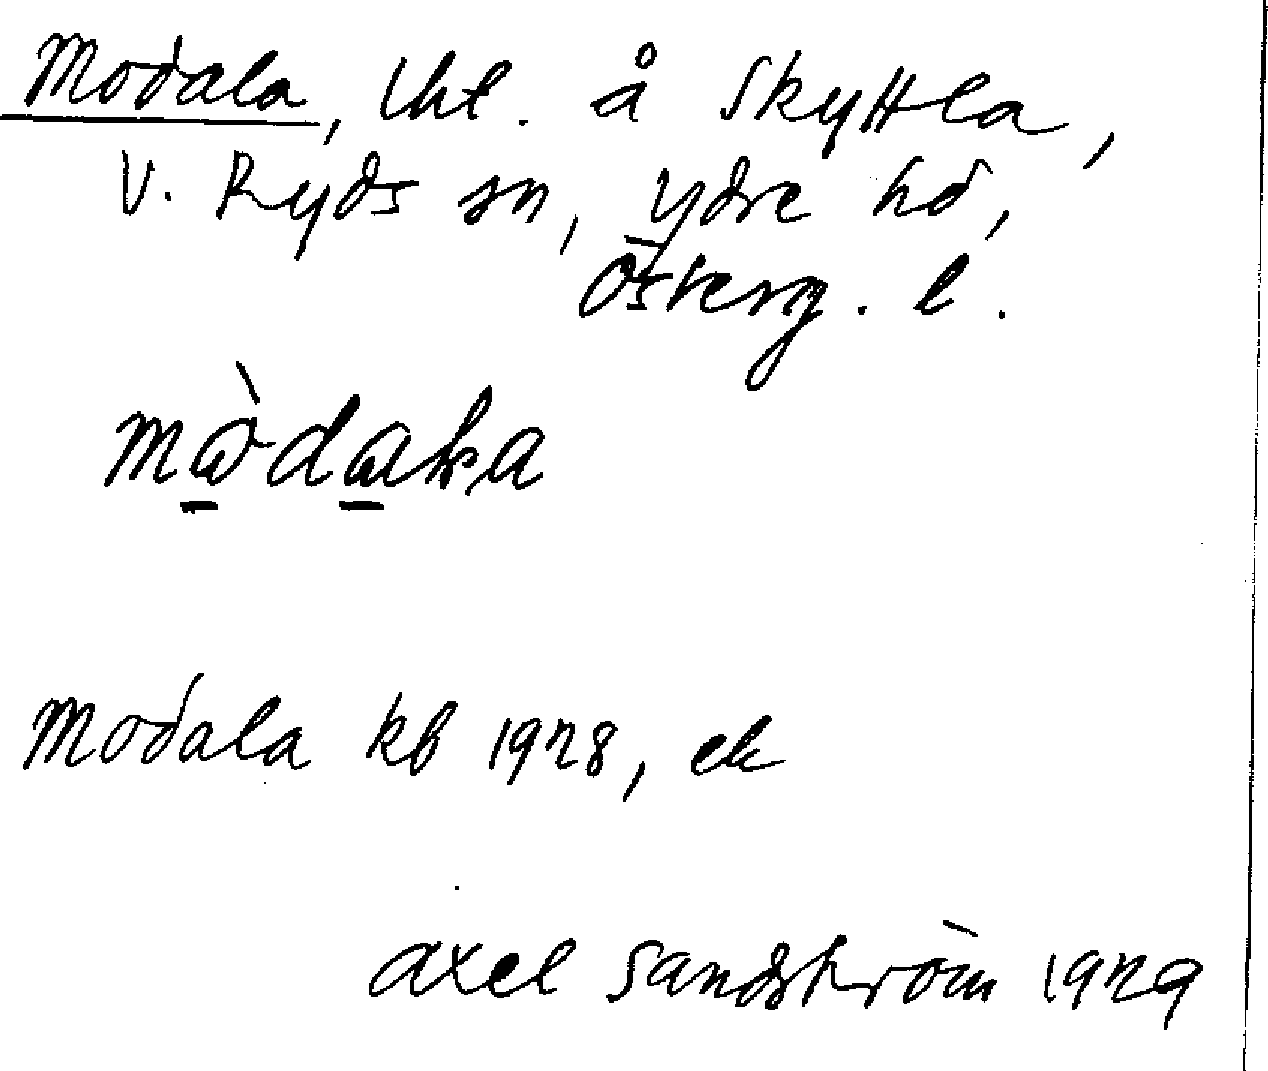 Modala, lht. å Skyttla,
V. Ryds sn, Ydre hd,
Österg. l.
Modala kb 1928, ek
Axel Sandström 1929